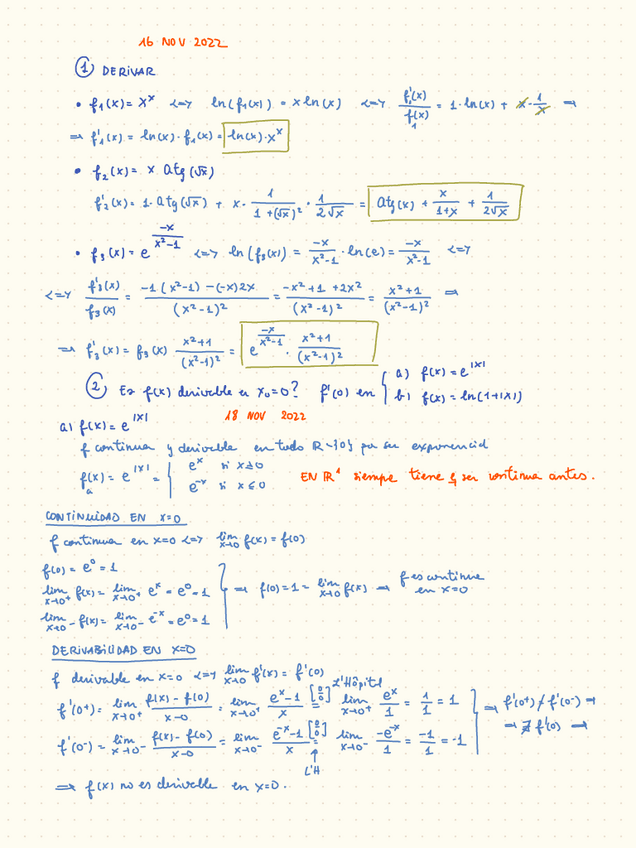 16 NOV 2022
① DERIVAR
• f₁(x) = xˣ <=> ln(f₁(x)) = x ln(x) <=> f₁'(x)/f₁(x) = 1·ln(x) + x·1/x =>
=> f₁'(x) = ln(x)·f₁(x) = ln(x)·xˣ
• f₂(x) = x atg(√x)
f₂'(x) = 1·atg(√x) + x·1/(1+(√x)²)·1/(2√x) = atg(x) + x/(1+x) + 1/(2√x)
• f₃(x) = e^(-x/(x²-1)) <=> ln(f₃(x)) = -x/(x²-1)·ln(e) = -x/(x²-1) <=>
<=> f₃'(x)/f₃(x) = (-1(x²-1) -(-x)2x)/(x²-1)² = (-x²+1+2x²)/(x²-1)² = (x²+1)/(x²-1)² =>
=> f₃'(x) = f₃(x) (x²+1)/(x²-1)² = e^(-x/(x²-1))·(x²+1)/(x²-1)²
② Es f(x) derivable en x₀=0? f'(0) en { a) f(x) = e^|x|
b) f(x) = ln(1+|x|)
18 NOV 2022
a) f(x) = e^|x|
f continua y derivable en todo ℝ-{0} por ser exponencial
fₐ(x) = e^|x| = { eˣ si x≥0
e⁻ˣ si x≤0
EN ℝ¹ siempre tiene q ser continua antes.
CONTINUIDAD EN x=0
f continua en x=0 <=> lim x→0 f(x) = f(0)
f(0) = e⁰ = 1
lim x→0⁺ f(x) = lim x→0⁺ eˣ = e⁰ = 1
lim x→0⁻ f(x) = lim x→0⁻ e⁻ˣ = e⁰ = 1
} => f(0) = 1 = lim x→0 f(x) => f es continua en x=0
DERIVABILIDAD EN x=0
f derivable en x=0 <=> lim x→0 f'(x) = f'(0)
L'Hôpital
f'(0⁺) = lim x→0⁺ (f(x)-f(0))/(x-0) = lim x→0⁺ (eˣ-1)/x = [0/0] lim x→0⁺ eˣ/1 = 1/1 = 1
f'(0⁻) = lim x→0⁻ (f(x)-f(0))/(x-0) = lim x→0⁻ (e⁻ˣ-1)/x = [0/0] lim x→0⁻ -e⁻ˣ/1 = -1/1 = -1
L'H
} => f'(0⁺) ≠ f'(0⁻) =>
=> ∄ f'(0) =>
=> f(x) no es derivable en x=0.